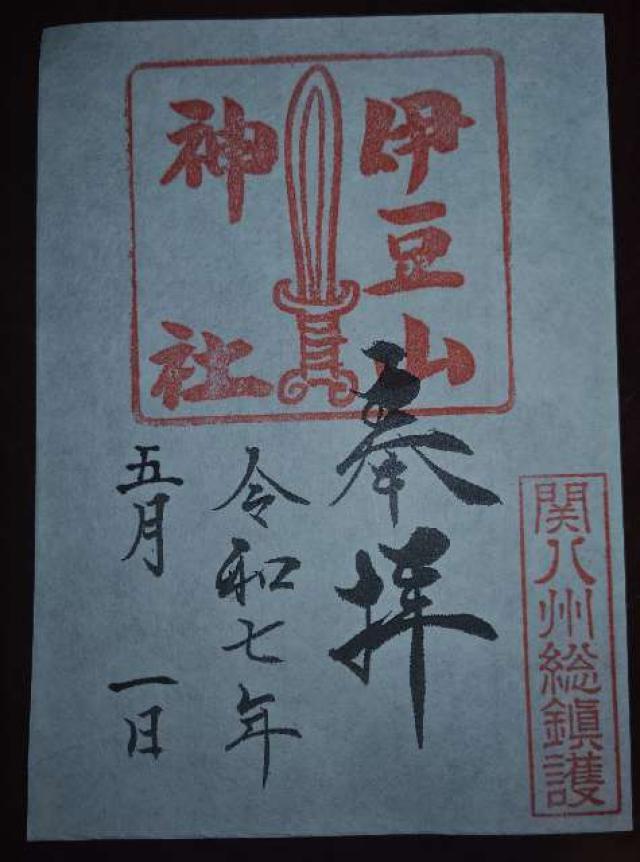 伊豆山
神社
関八州総鎮護
奉拝
令和七年
五月一日